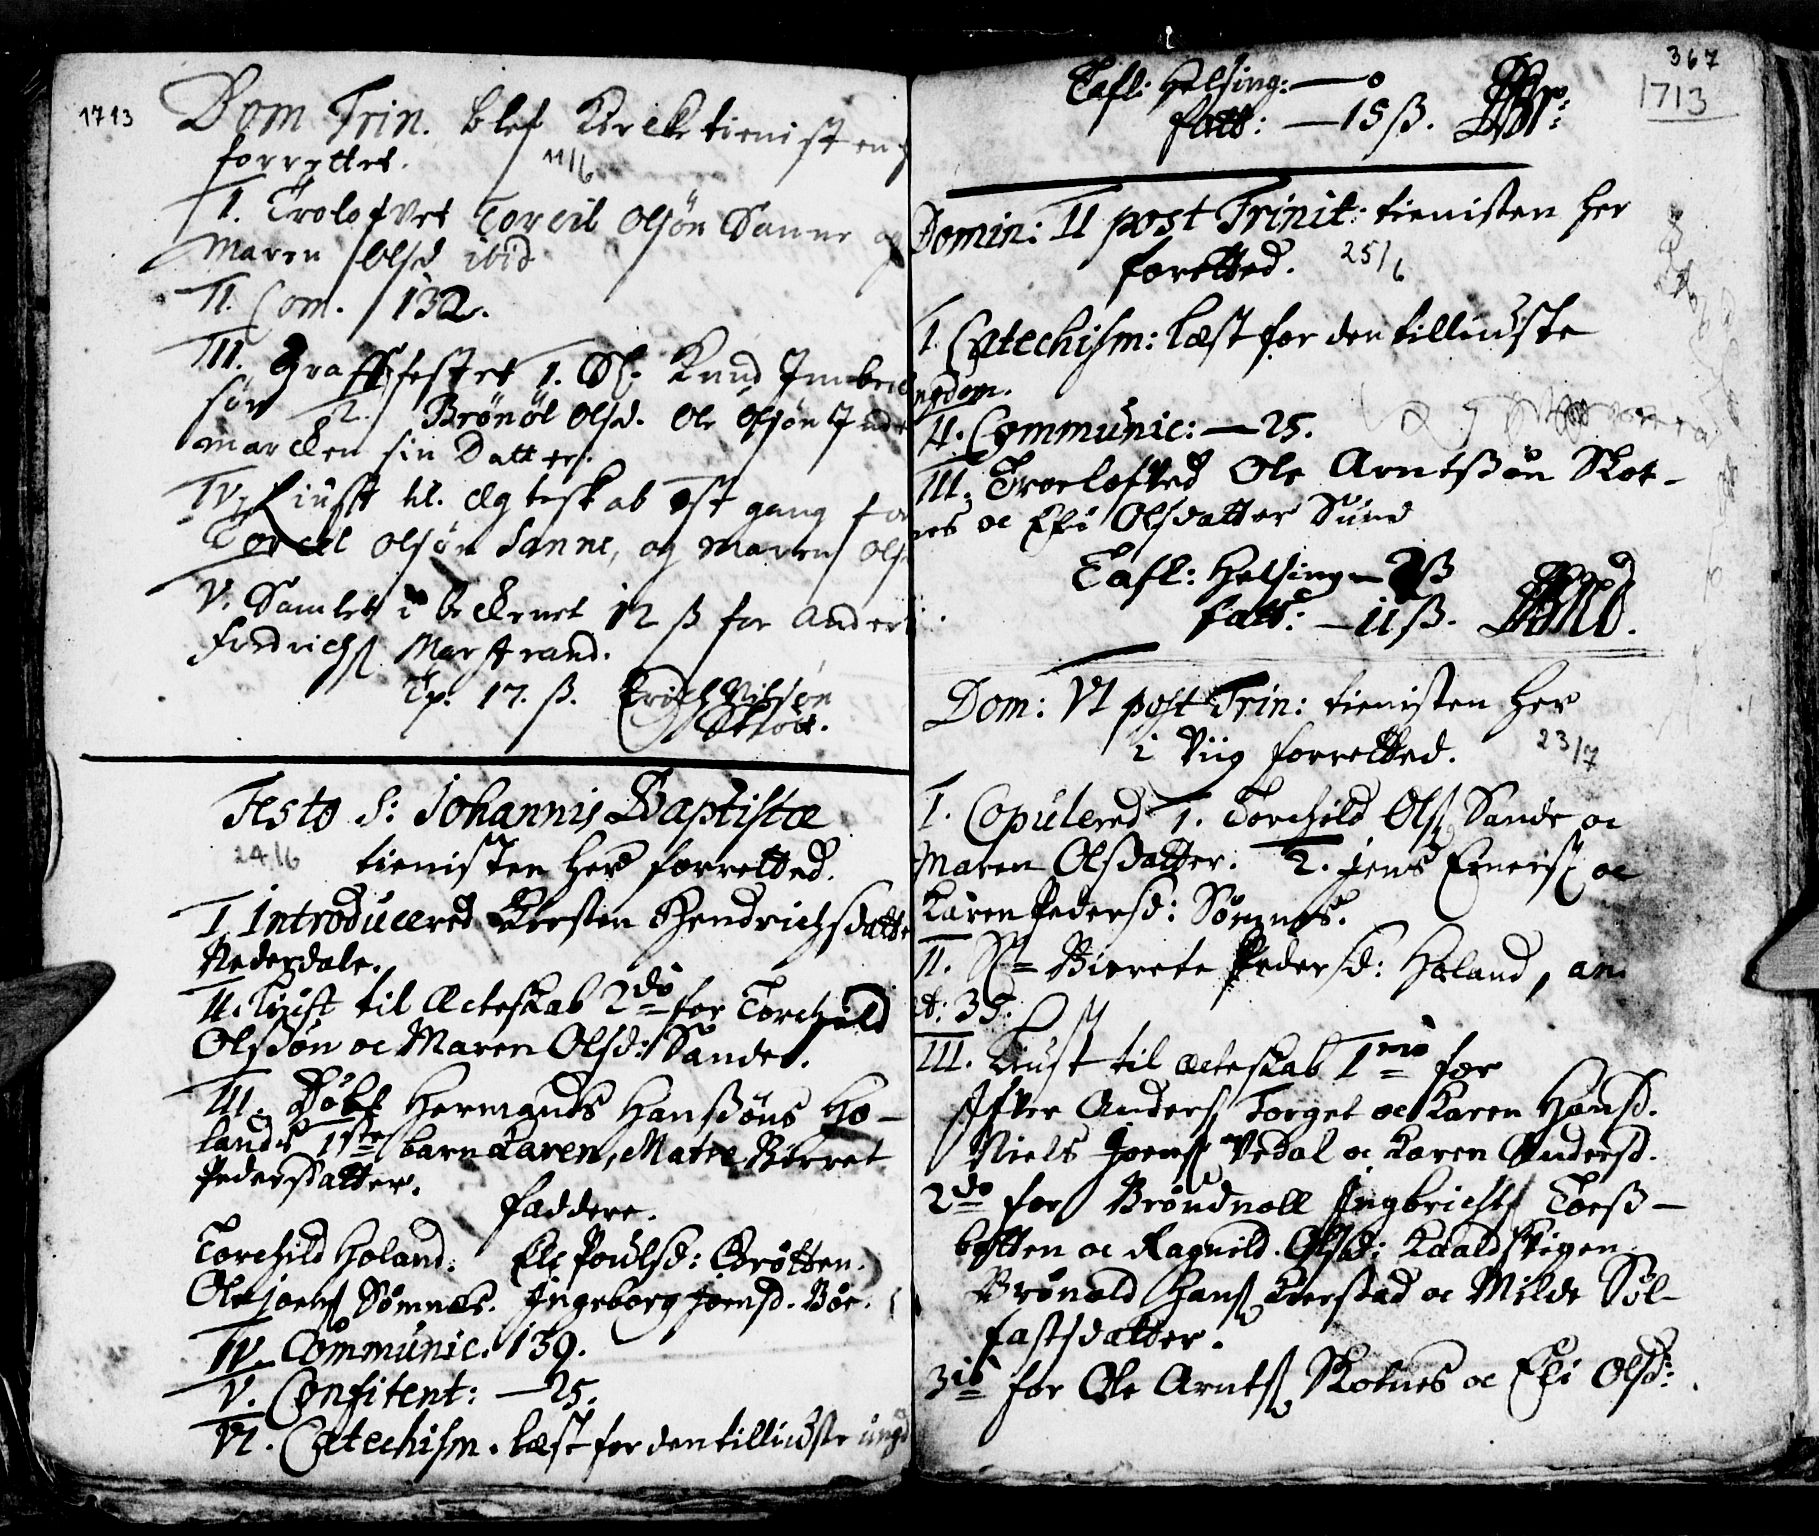 1713
Dom Trin. blef Kircke tienisten
forrettet. 11/6
I. Trolofvet Torcil Olsøn Sanne og
Maren Olsd ibid
II. Com. 132.
III. Graffestet 1. Sl. Knud Jmbric
søn 2. Brønøl Olsd. Ole Olsøn Jnde
marcken sin Datter.
IV. Liust til Ægteskab 1st gang for
Torcel Olsøn Sanne, og Maren Ols
V. Samlet i beckenet 12 ß for Anders
Fridrichs Marstrand.
Tp. 17. ß. Erich Nilsøn
Festo S: Johannis Baptistæ
24/6 tienisten her forretted.
I. Introducered Kirsten Hendrichsdatte
Nederdale.
II. Liust til Ecteskab 2do for Torchild
Olssøn oc Maren Olsd: Sande.
III. Døbt Hermands Hanssøns Ho-
lands 1ste barn Karen, Mater Birret
Pedersdatter.
Faddere.
Torchild Holand. Ele Poulsd: Brøtten.
Ole Joens Sømnes. Ingeborg Joensd. Bøe.
IV. Communic. 139.
V. Confitent: — 25.
VI. Catechism. læst for den tilliudste ungd
367
1713
Tafl: Helsing: — 0
fatt: — 15 ß.
Domin: II post Trinit: tienisten her
foretted. 25/6
I. Catechism: læst for den tilliudste
ngdom.
II. Communic: — 25.
III. Troelofved Ole Arntssøn Skot-
nes oc Eli Olsdatter Sund
Tafl: Helsing — 2 ß
fatt: — 11 ß.
Dom: VI post Trin: tienisten her
i Viig forretted. 23/7
I. Copulered 1. Torchild Ols Sande oc
Maren Olsdatter. 2. Jens Eners oc
Karen Pedersd: Sømnes.
II. Birrete Pedersd: Holand, an.
et: 35.
III. Liust til Ecteskab 1mo for
Ifver Anders Torget oc Karen Hansd.
Niels Joens Vedal oc Karen Andersd.
2do for Brøndnoll Ingbrichts Torß-
botten oc Ragnild Olsd: Kaaldskigen
Brønold Hans Kierstad oc Milde Søl-
fastsdatter.
3io for Ole Arnts Skotnes oc Eli Olsd: